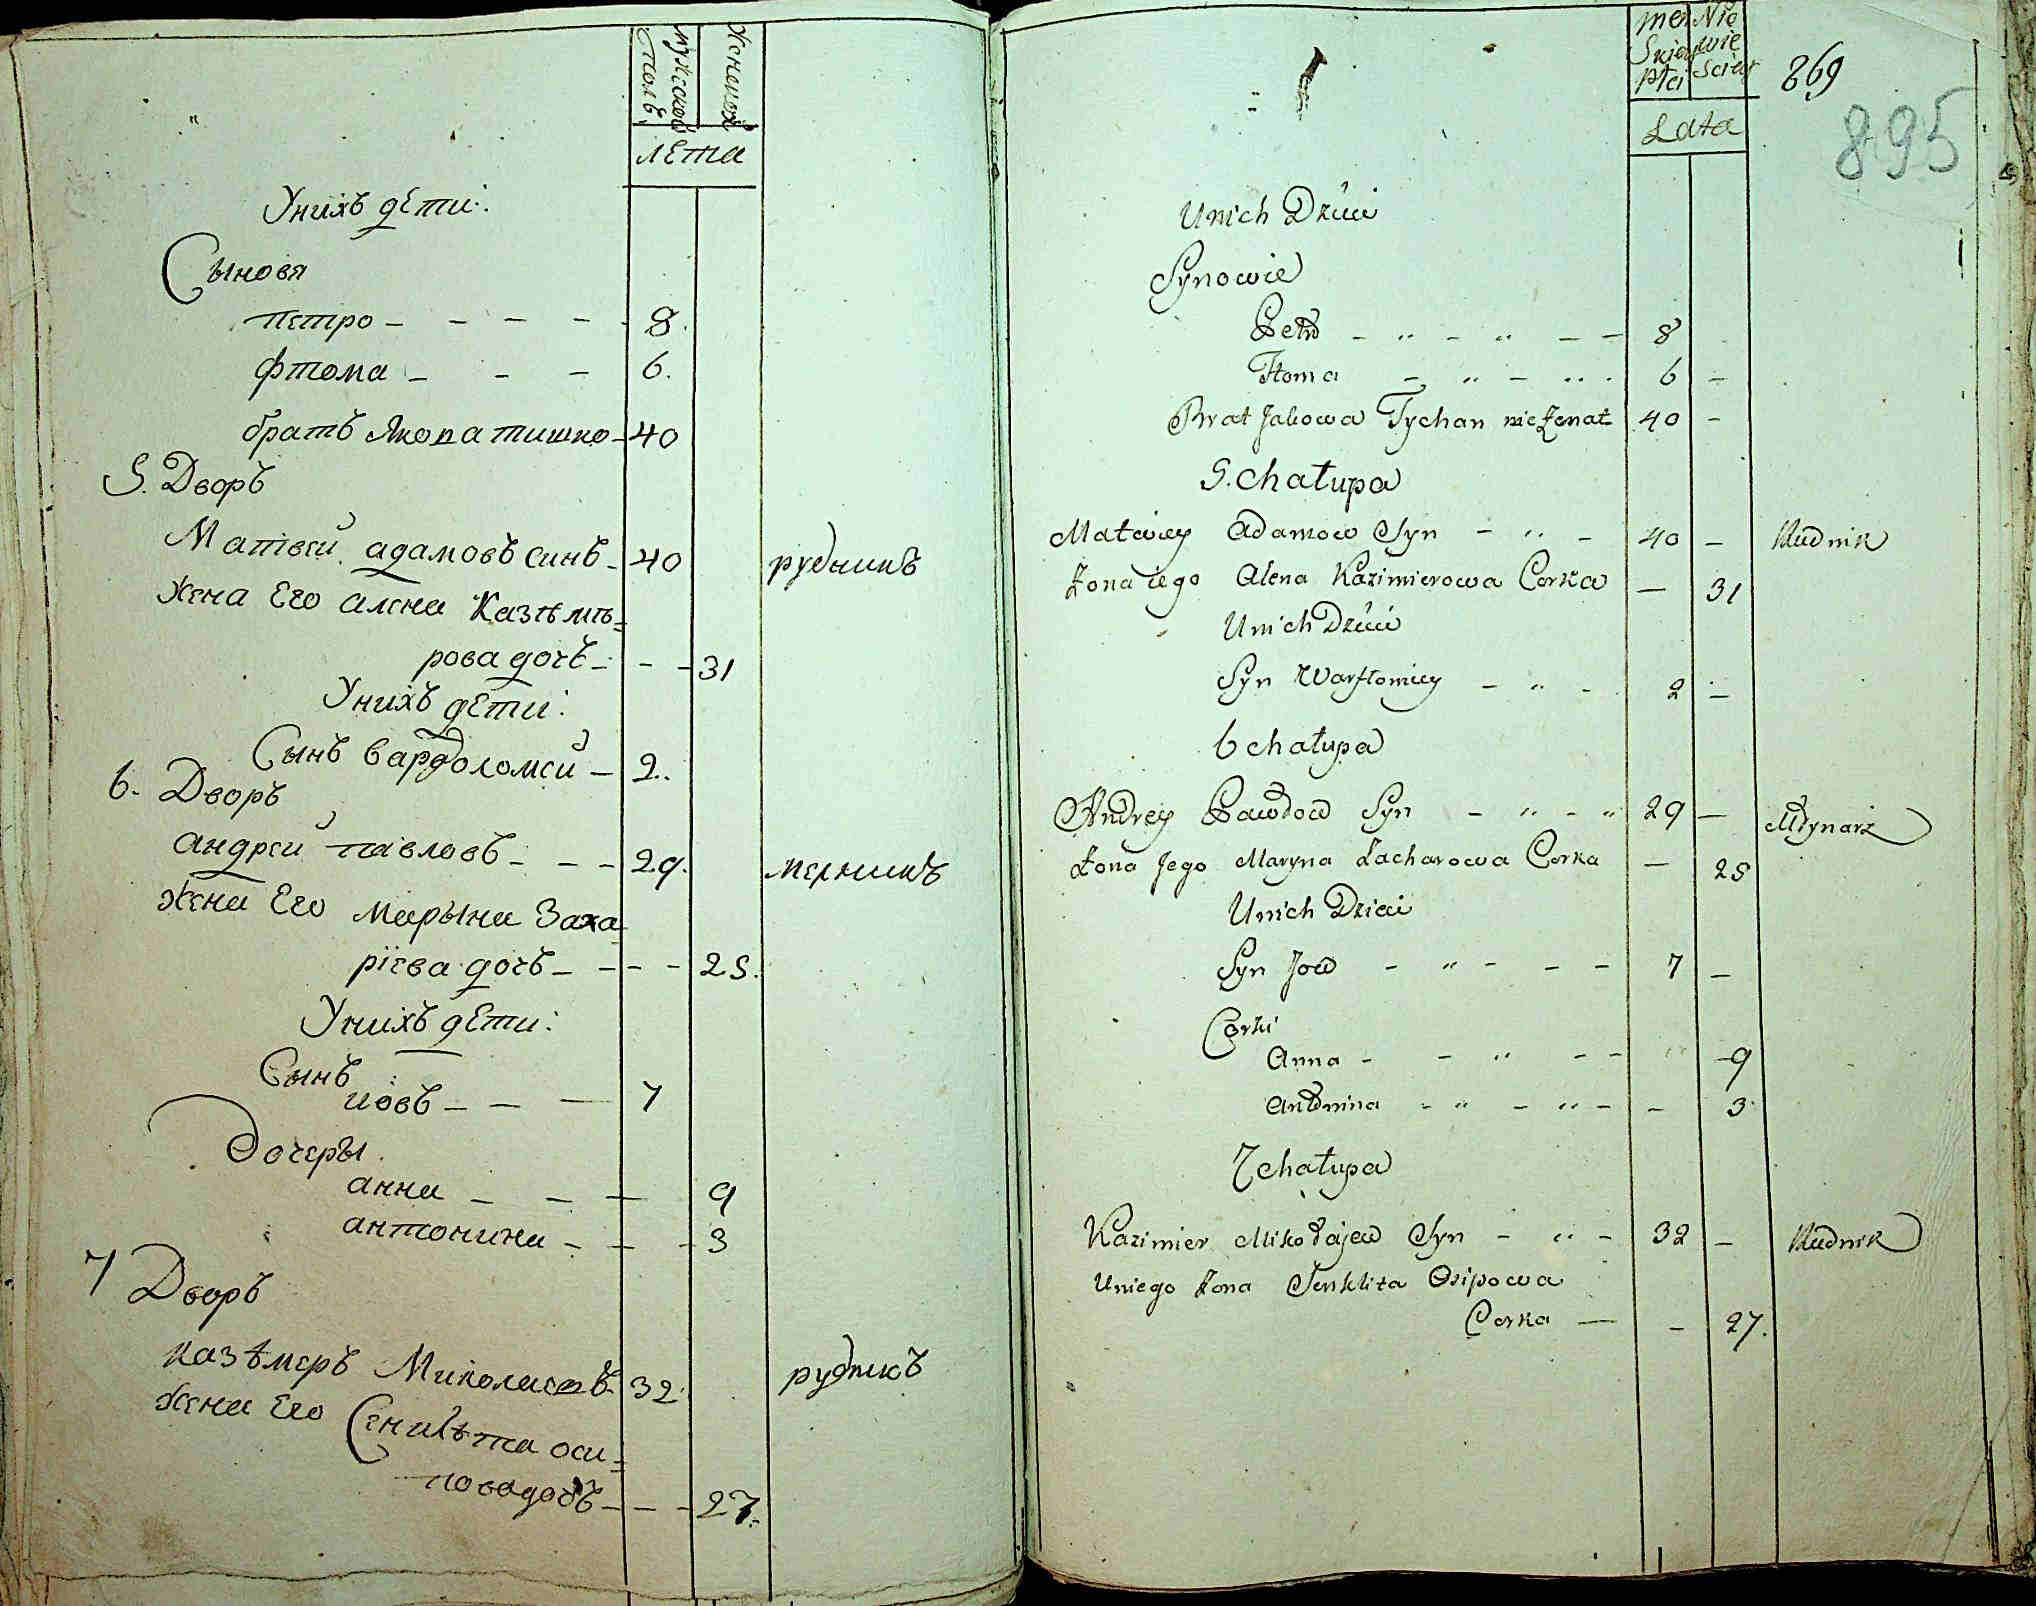 мужской полъ
женской
лЕта
Унихъ дЕти:
Сыновя
петро - - - - 8.
фтома - - - 6.
братъ Якова тишко - 40
5. Дворъ
Матвей адамовъ синъ - 40 рудникъ
жена Его алена Казѣмѣ=
рова дочъ - - - 31
Унихъ дЕти:
Сынъ вардоломей - 2.
6. Дворъ
андрей павловъ - - - 29. мерникъ
жена Его марына Заха=
ріева дочъ - - - - 25.
Унихъ дЕти:
Сынъ
иовъ - - - 7
Дочеры
анна - - - 9
антонина - - - 3
7 Дворъ
казѣмеръ Миколаевъ 32. рудникъ
жена Его Сенклѣта оси=
пова дочъ - - - 27.
męskiey płci
Nie wie sciey
869
Lata
895
Unich Dzieci
Synowie
Petro - " - " - - 8
Ftoma - " - " - 6 -
Brat Jakowa Tychan nieżenat 40 -
5. chałupa
Matwiey Adamow Syn - " - 40 - Rudnik
Żona iego Alena Kazimierowa Corka - 31
Unich Dzieci
Syn Warfłomiey - " - 2 -
6 chałupa
Andrey Pawłow Syn - " - " 29 - Młynarz
Żona Jego Maryna Zacharowa Corka - 25
Unich Dzieci
Syn Jow - " - - - 7 -
Corki
Anna - - " - - 9
Antonina - " - " - - 3
7 chałupa
Kazimier Mikołajew Syn - " - 32 - Rudnik
Uniego Żona Senklita Osipowa
Corka - - 27.